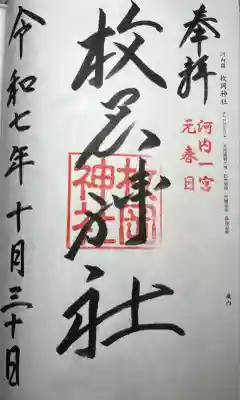 河内國 枚岡神社
奉拝
河内一宮
元春日
枚岡神社
枚岡
神社
令和七年十月三十日